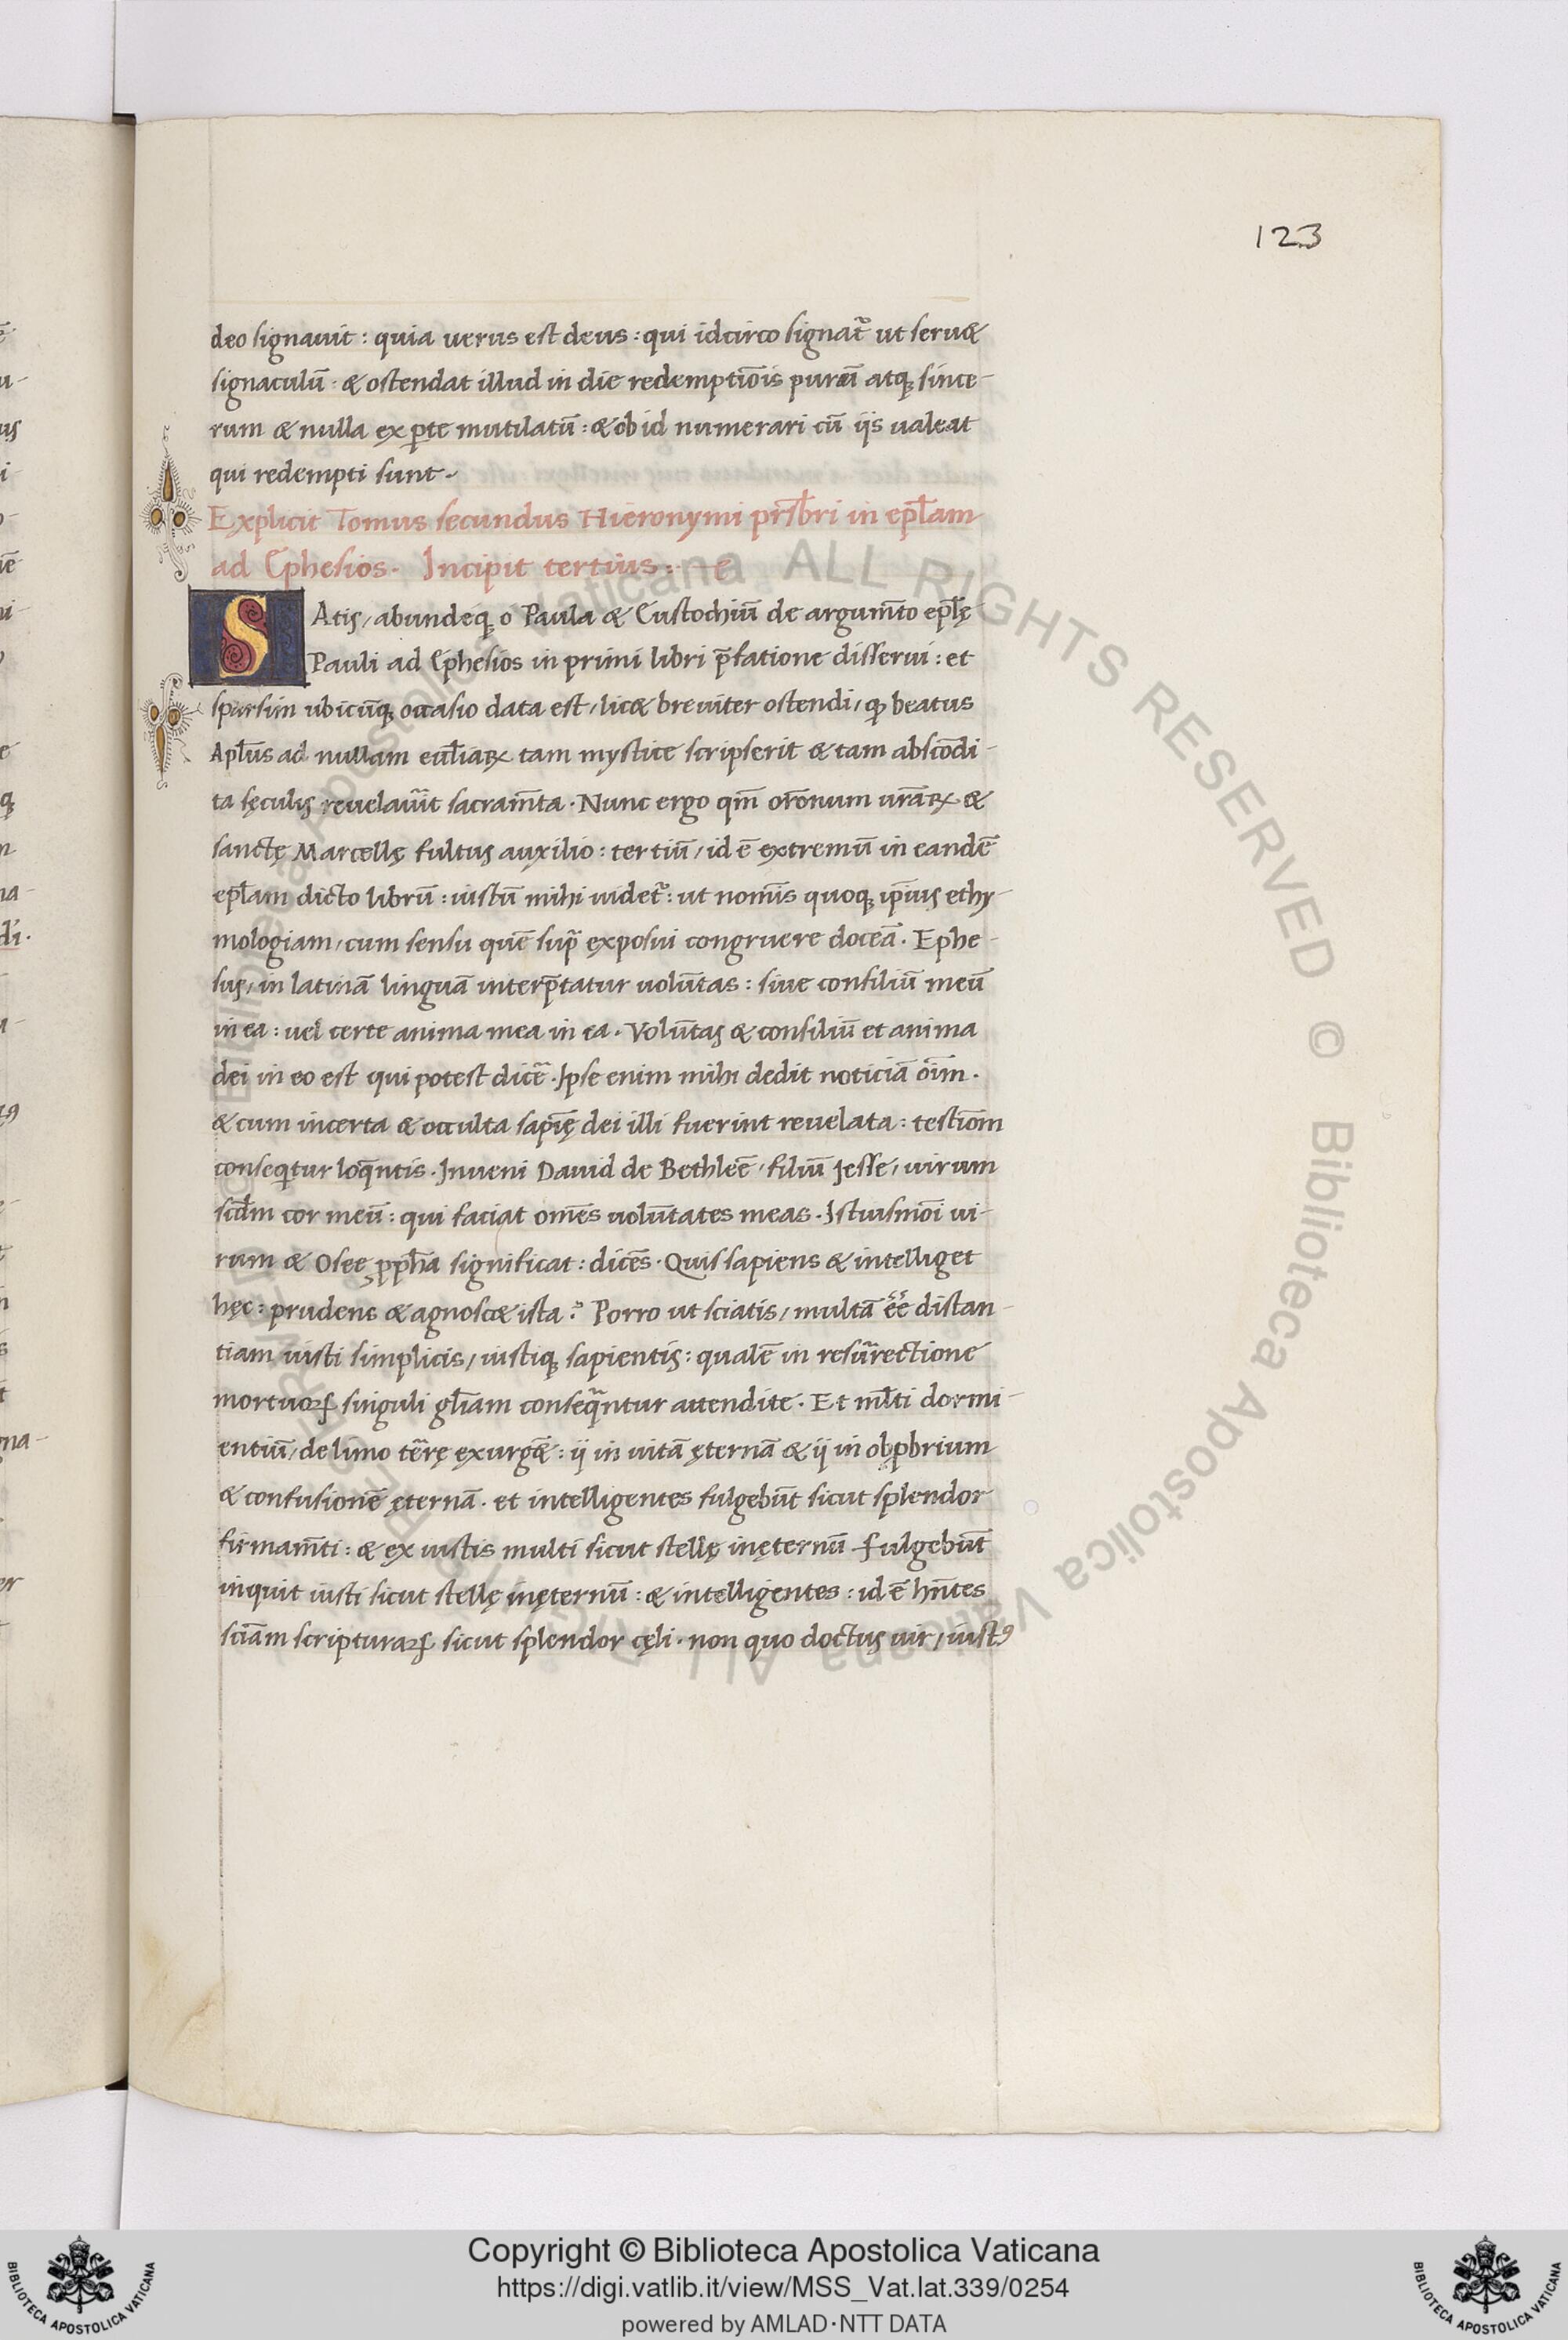 123
deo signauit : quia uerus est deus : qui idcirco signat᷑ ut seru&
signaculū · & ostendat illud in die redemptiōis purū atq; since-
rum & nulla ex ꝑte mutilatū : & ob id numerari cū ijs ualeat
qui redempti sunt ·
Explicit Tomus secundus Hieronymi prsb̄ri in epl̄am
ad Ephesios · Incipit tertius :
SAtis, abundeq; o Paula & Eustochiū de argum̄to epl̄ę
Pauli ad Ephesios in primi libri p̄fatione disserui : et
sparsim ubicūq; occasio data est, lic& breuiter ostendi, ꝙ beatus
Apl̄us ad nullam eccl̄iaꝝ tam mystice scripserit & tam abscōdi-
ta sęculis reuelauit sacram̄ta · Nunc ergo qm̄ or̄onum ur̄aꝝ &
sanctę Marcellę fultus auxilio : tertiū, id ē extremū in eandē
epl̄am dicto librū : iustū mihi uidet᷑ : ut nom̄is quoq; ip̄ius ethy-
mologiam, cum sensu quē sup̄ exposui congruere doceā · Ephe-
sus, in latinā linguā interp̄tatur uolūtas : siue consiliū meū
in ea : uel certe anima mea in ea · Volūtas & consiliū et anima
dei in eo est qui potest dic̄e · Ipse enim mihi dedit noticiā oīm ·
& cum incerta & occulta sapīę dei illi fuerint reuelata : testiōm
conseq̄tur loq̄ntis · Inueni Dauid de Bethleē, filiū Jesse, uirum
scd̄m cor meū : qui faciat om̄es uolūtates meas · Istiusmōi ui-
rum & Osee ꝓph̄a significat : dicēs · Quis sapiens & intelliget
hęc : prudens & agnosc& ista ? Porro ut sciatis, multā eē distan-
tiam iusti simplicis, iustiq; sapientis : qualē in resurrectione
mortuoꝝ singuli gl̄iam conseq̄ntur attendite · Et ml̄ti dormi-
entiū, de limo terrę exurg&̄ : ij in uitā ęternā & ij in obꝓbrium
& confusionē ęternā · et intelligentes fulgebūt sicut splendor
firmam̄ti : & ex iustis multi sicut stellę inęternū · fulgebūt
inquit iusti sicut stellę inęternū : & intelligentes : id ē hn̄tes
sciām scripturaꝝ sicut splendor cęli · non quo doctus uir, iustꝰ
© Biblioteca Apostolica Vaticana ALL RIGHTS RESERVED © Biblioteca Apostolica Vaticana ALL RIGHTS RESERVED
Copyright © Biblioteca Apostolica Vaticana
https://digi.vatlib.it/view/MSS_Vat.lat.339/0254
powered by AMLAD·NTT DATA
BIBLIOTECA APOSTOLICA VATICANA
BIBLIOTECA APOSTOLICA VATICANA